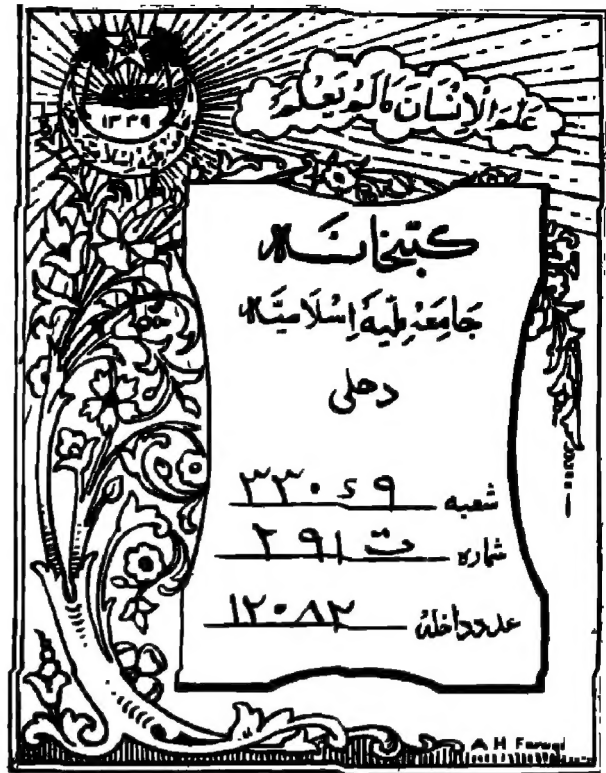 عَلَّمَ الْإِنْسَانَ مَا لَمْ يَعْلَمْ
۱۳۳۹
کتبخانہ
جَامِعَہ مِلّیَہ اِسْلَامِیَّہ
دهلی
شعبه ۳۳۰ء۹
شماره ت ۲۹۱
عدد داخلہ ۱۲۰۸۲
A H Faruqi